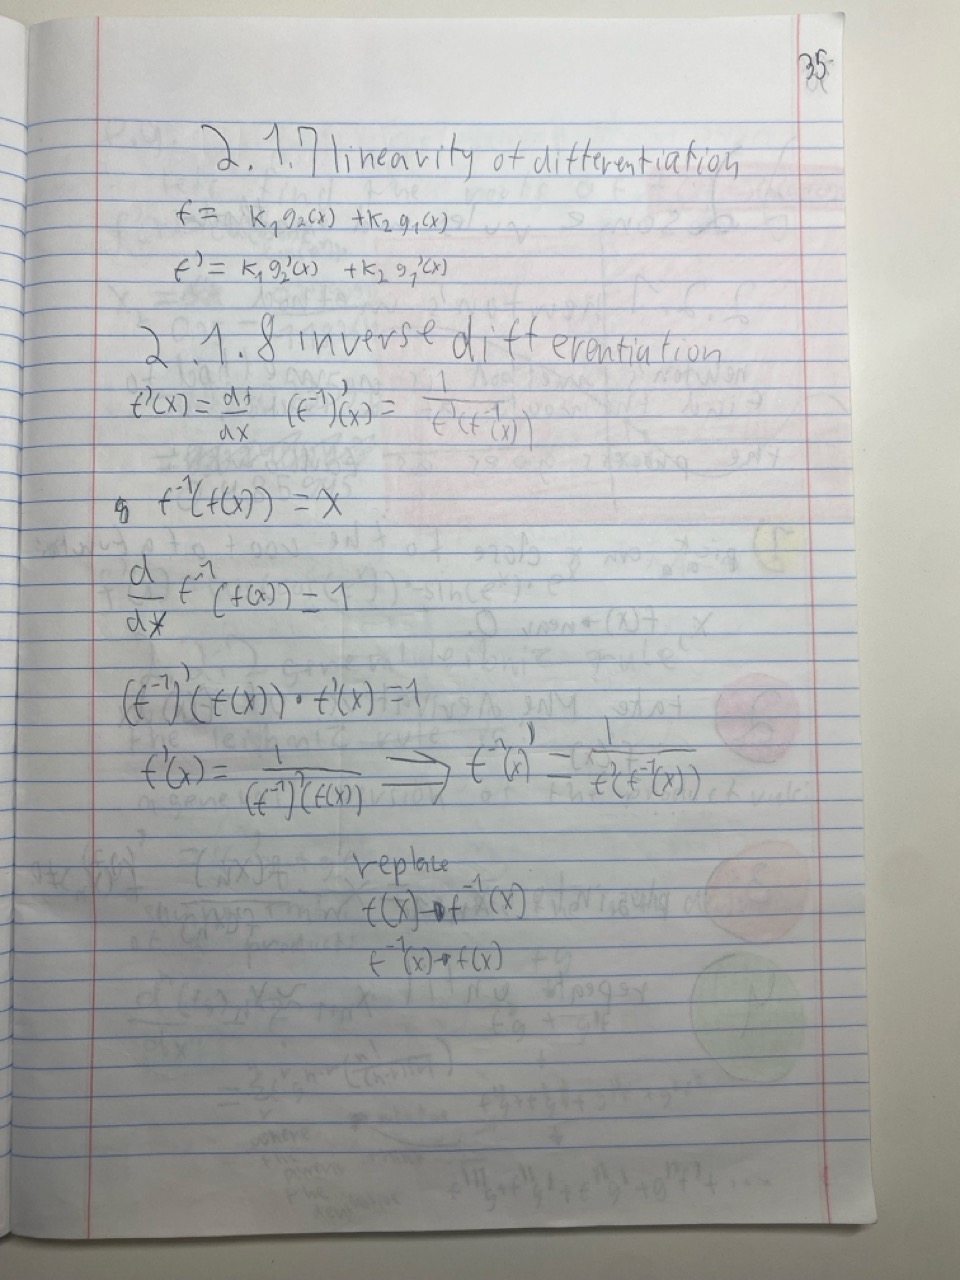 35
2.1.7 linearity of differentiation
f = k₁g₂(x) + k₂g₁(x)
f' = k₁g₂'(x) + k₂g₁'(x)
2.1.8 inverse differentiation
f'(x) = df/dx (f⁻¹)'(x) = 1/f'(f⁻¹(x))
f⁻¹(f(x)) = x
d/dx f⁻¹(f(x)) = 1
(f⁻¹)'(f(x)) • f'(x) = 1
f'(x) = 1/(f⁻¹)'(f(x)) ⟹ f⁻¹(x)' = 1/f'(f⁻¹(x))
replace
f(x) → f⁻¹(x)
f⁻¹(x) → f(x)